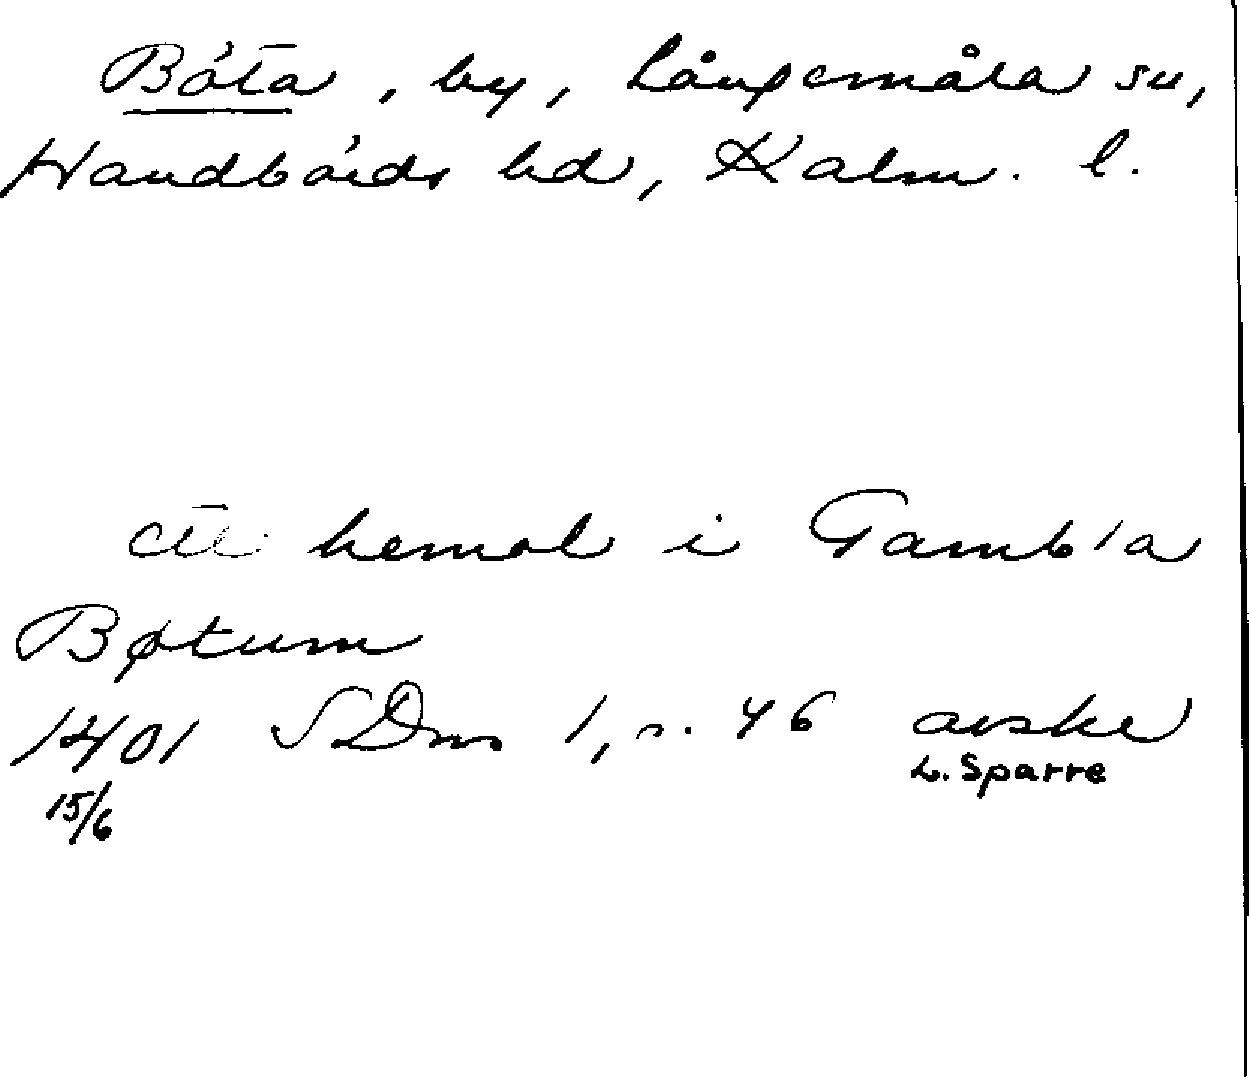 Böta, by, Långemåla sn,
Handbörds hd, Kalm. l.
ett hemol i Gambla
Bøtum
1401 SDns 1, s. 46 avskr
L. Sparre
15/6